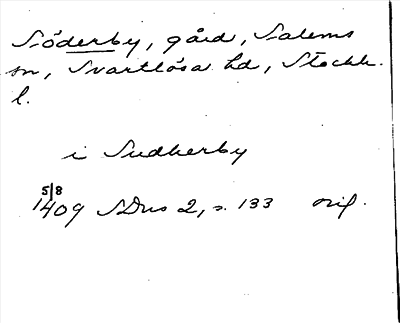 Söderby, gård, Salems
sn, Svartlösa hd, Stockh.
l.
i Sudherby
5/8
1409 SDns 2, s. 133 orig.